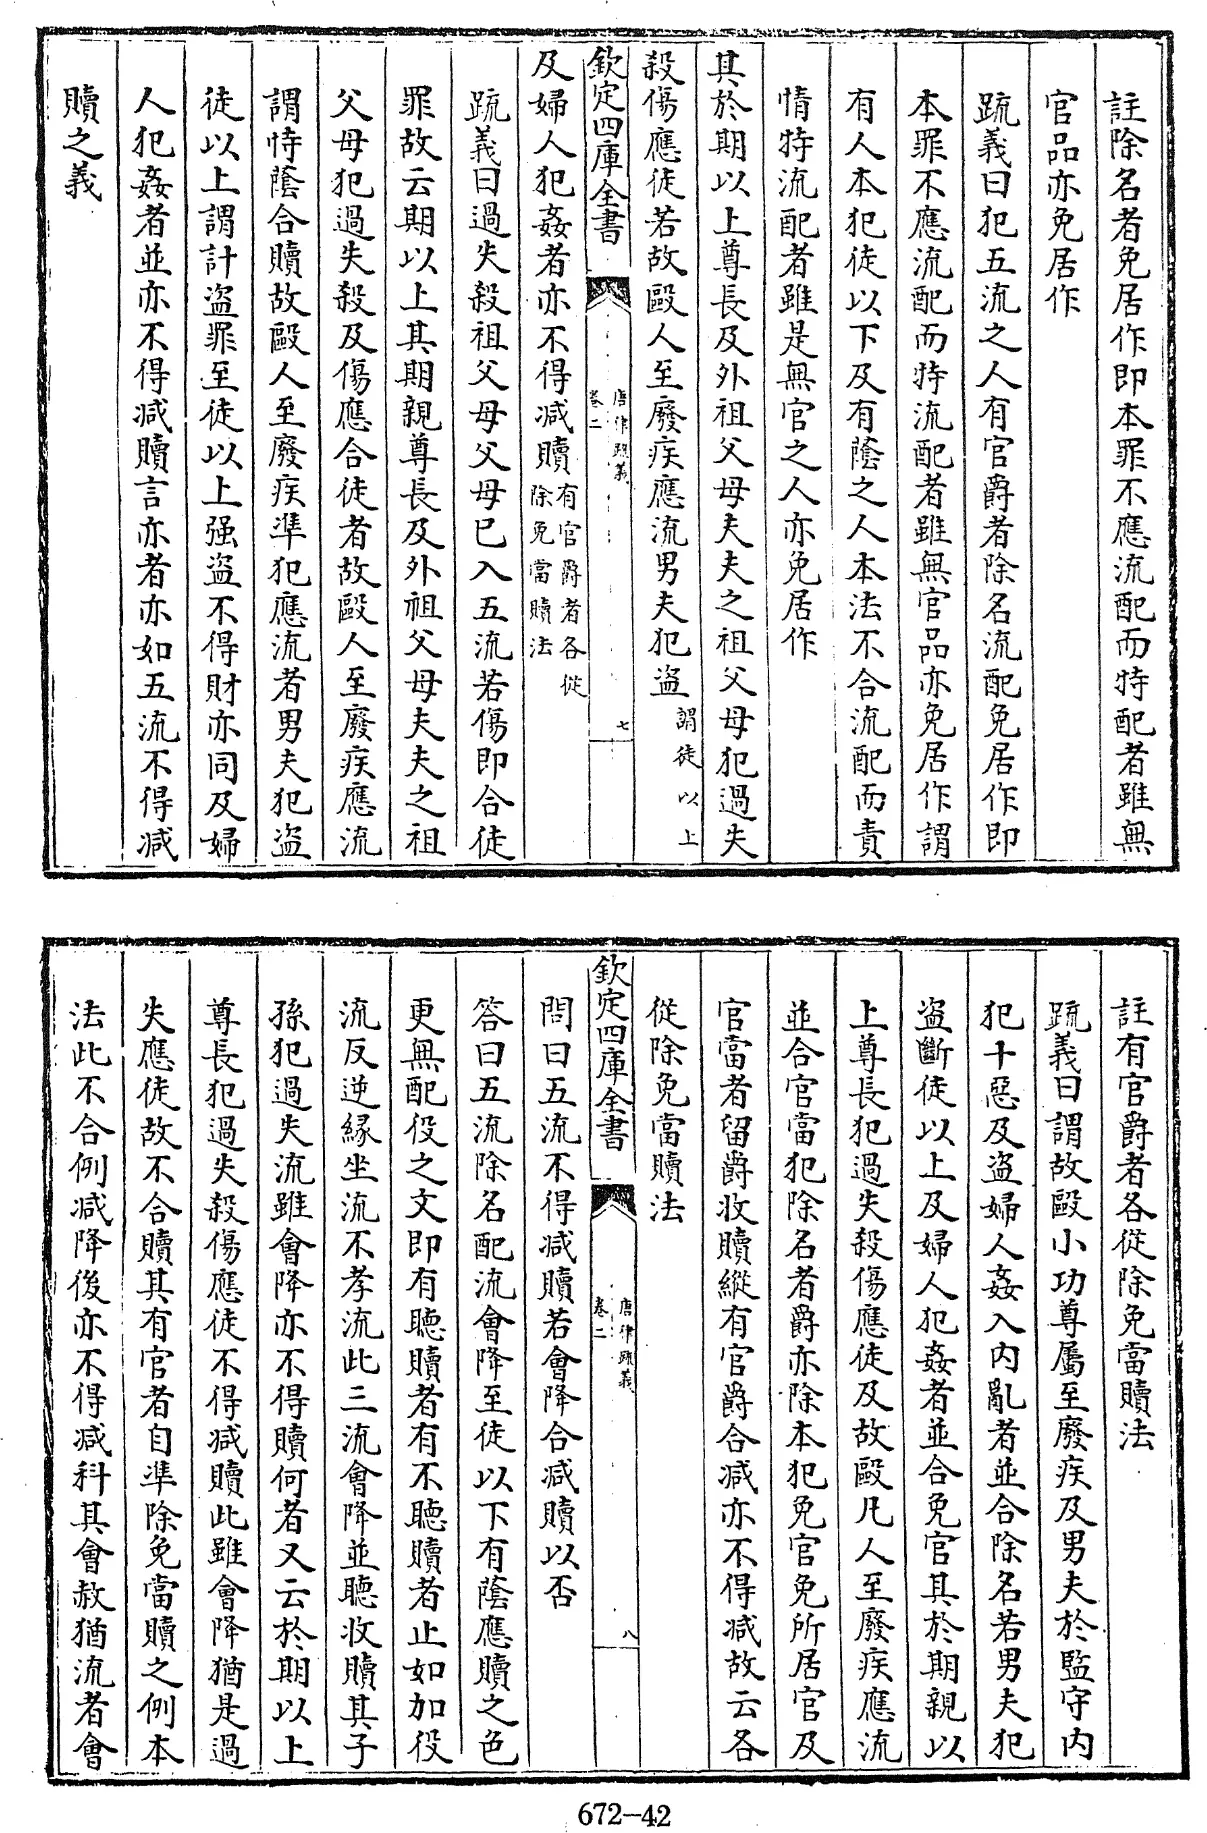 註除名者免居作即本罪不應流配而特配者雖無
官品亦免居作
疏義曰犯五流之人有官爵者除名流配免居作即
本罪不應流配而特流配者雖無官品亦免居作謂
有人本犯徒以下及有蔭之人本法不合流配而責
情特流配者雖是無官之人亦免居作
其於期以上尊長及外祖父母夫夫之祖父母犯過失
殺傷應徒若故毆人至廢疾應流男夫犯盜謂徒以上
欽定四庫全書
唐律疏義
卷二
七
及婦人犯姦者亦不得減贖有官爵者各從除免當贖法
疏義曰過失殺祖父母父母已入五流若傷即合徒
罪故云期以上其期親尊長及外祖父母夫夫之祖
父母犯過失殺及傷應合徒者故毆人至廢疾應流
謂恃蔭合贖故毆人至廢疾準犯應流者男夫犯盜
徒以上謂計盜罪至徒以上强盜不得財亦同及婦
人犯姦者並亦不得減贖言亦者亦如五流不得減
贖之義
註有官爵者各從除免當贖法
疏義曰謂故毆小功尊屬至廢疾及男夫於監守內
犯十惡及盜婦人姦入內亂者並合除名若男夫犯
盜斷徒以上及婦人犯姦者並合免官其於期親以
上尊長犯過失殺傷應徒及故毆凡人至廢疾應流
並合官當犯除名者爵亦除本犯免官免所居官及
官當者留爵收贖縱有官爵合減亦不得減故云各
從除免當贖法
欽定四庫全書
唐律疏義
卷二
八
問曰五流不得減贖若會降合減贖以否
答曰五流除名配流會降至徒以下有蔭應贖之色
更無配役之文即有聽贖者有不聽贖者止如加役
流反逆縁坐流不孝流此三流會降並聽收贖其子
孫犯過失流雖會降亦不得贖何者又云於期以上
尊長犯過失殺傷應徒不得減贖此雖會降猶是過
失應徒故不合贖其有官者自準除免當贖之例本
法此不合例減降後亦不得減科其會赦猶流者會
672-42